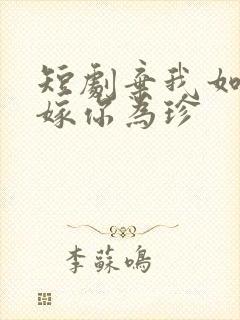 短劇棄我如
嫁你為珍
李蘇鳴